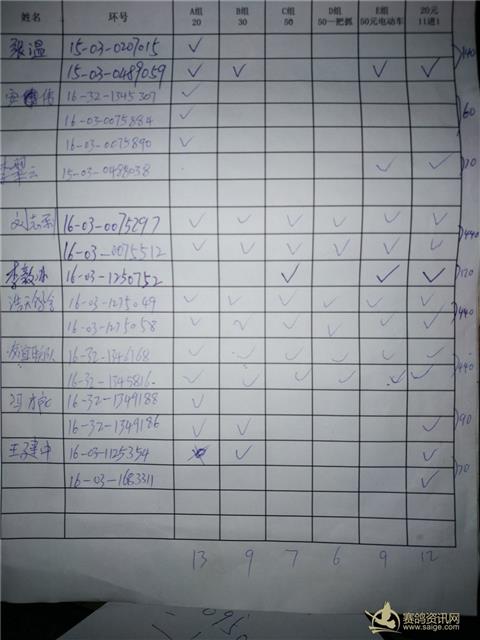 姓名 环号 A组 20 B组 30 C组 50 D组 50一把抓 E组 50元电动车 20元 11进1
张温 15-03-0207015 ✓
15-03-0489059 ✓ ✓ ✓ ✓ 140
16-32-1345307 ✓
16-03-0075884 ✓ 60
16-03-0075890 ✓
15-03-0488038 ✓ ✓ 70
刘志 16-03-0075297 ✓ ✓ ✓ ✓ ✓ ✓
16-03-0075512 ✓ ✓ ✓ ✓ ✓ ✓ 440
李毅 16-03-1250752 ✓ ✓ ✓ 120
16-03-1275049 ✓ ✓ ✓ ✓ ✓ ✓
16-03-1275058 ✓ ✓ ✓ ✓ ✓ ✓ 440
16-32-1346768 ✓ ✓ ✓ ✓ ✓ ✓
16-32-1345816 ✓ ✓ ✓ ✓ ✓ ✓ 440
冯 16-32-1349188 ✓
16-32-1349186 ✓ ✓ ✓ 90
王建中 16-03-1125354 ✓ ✓
16-03-1683311 ✓ 70
13 9 7 6 9 12
赛鸽资讯网
www.saige.com